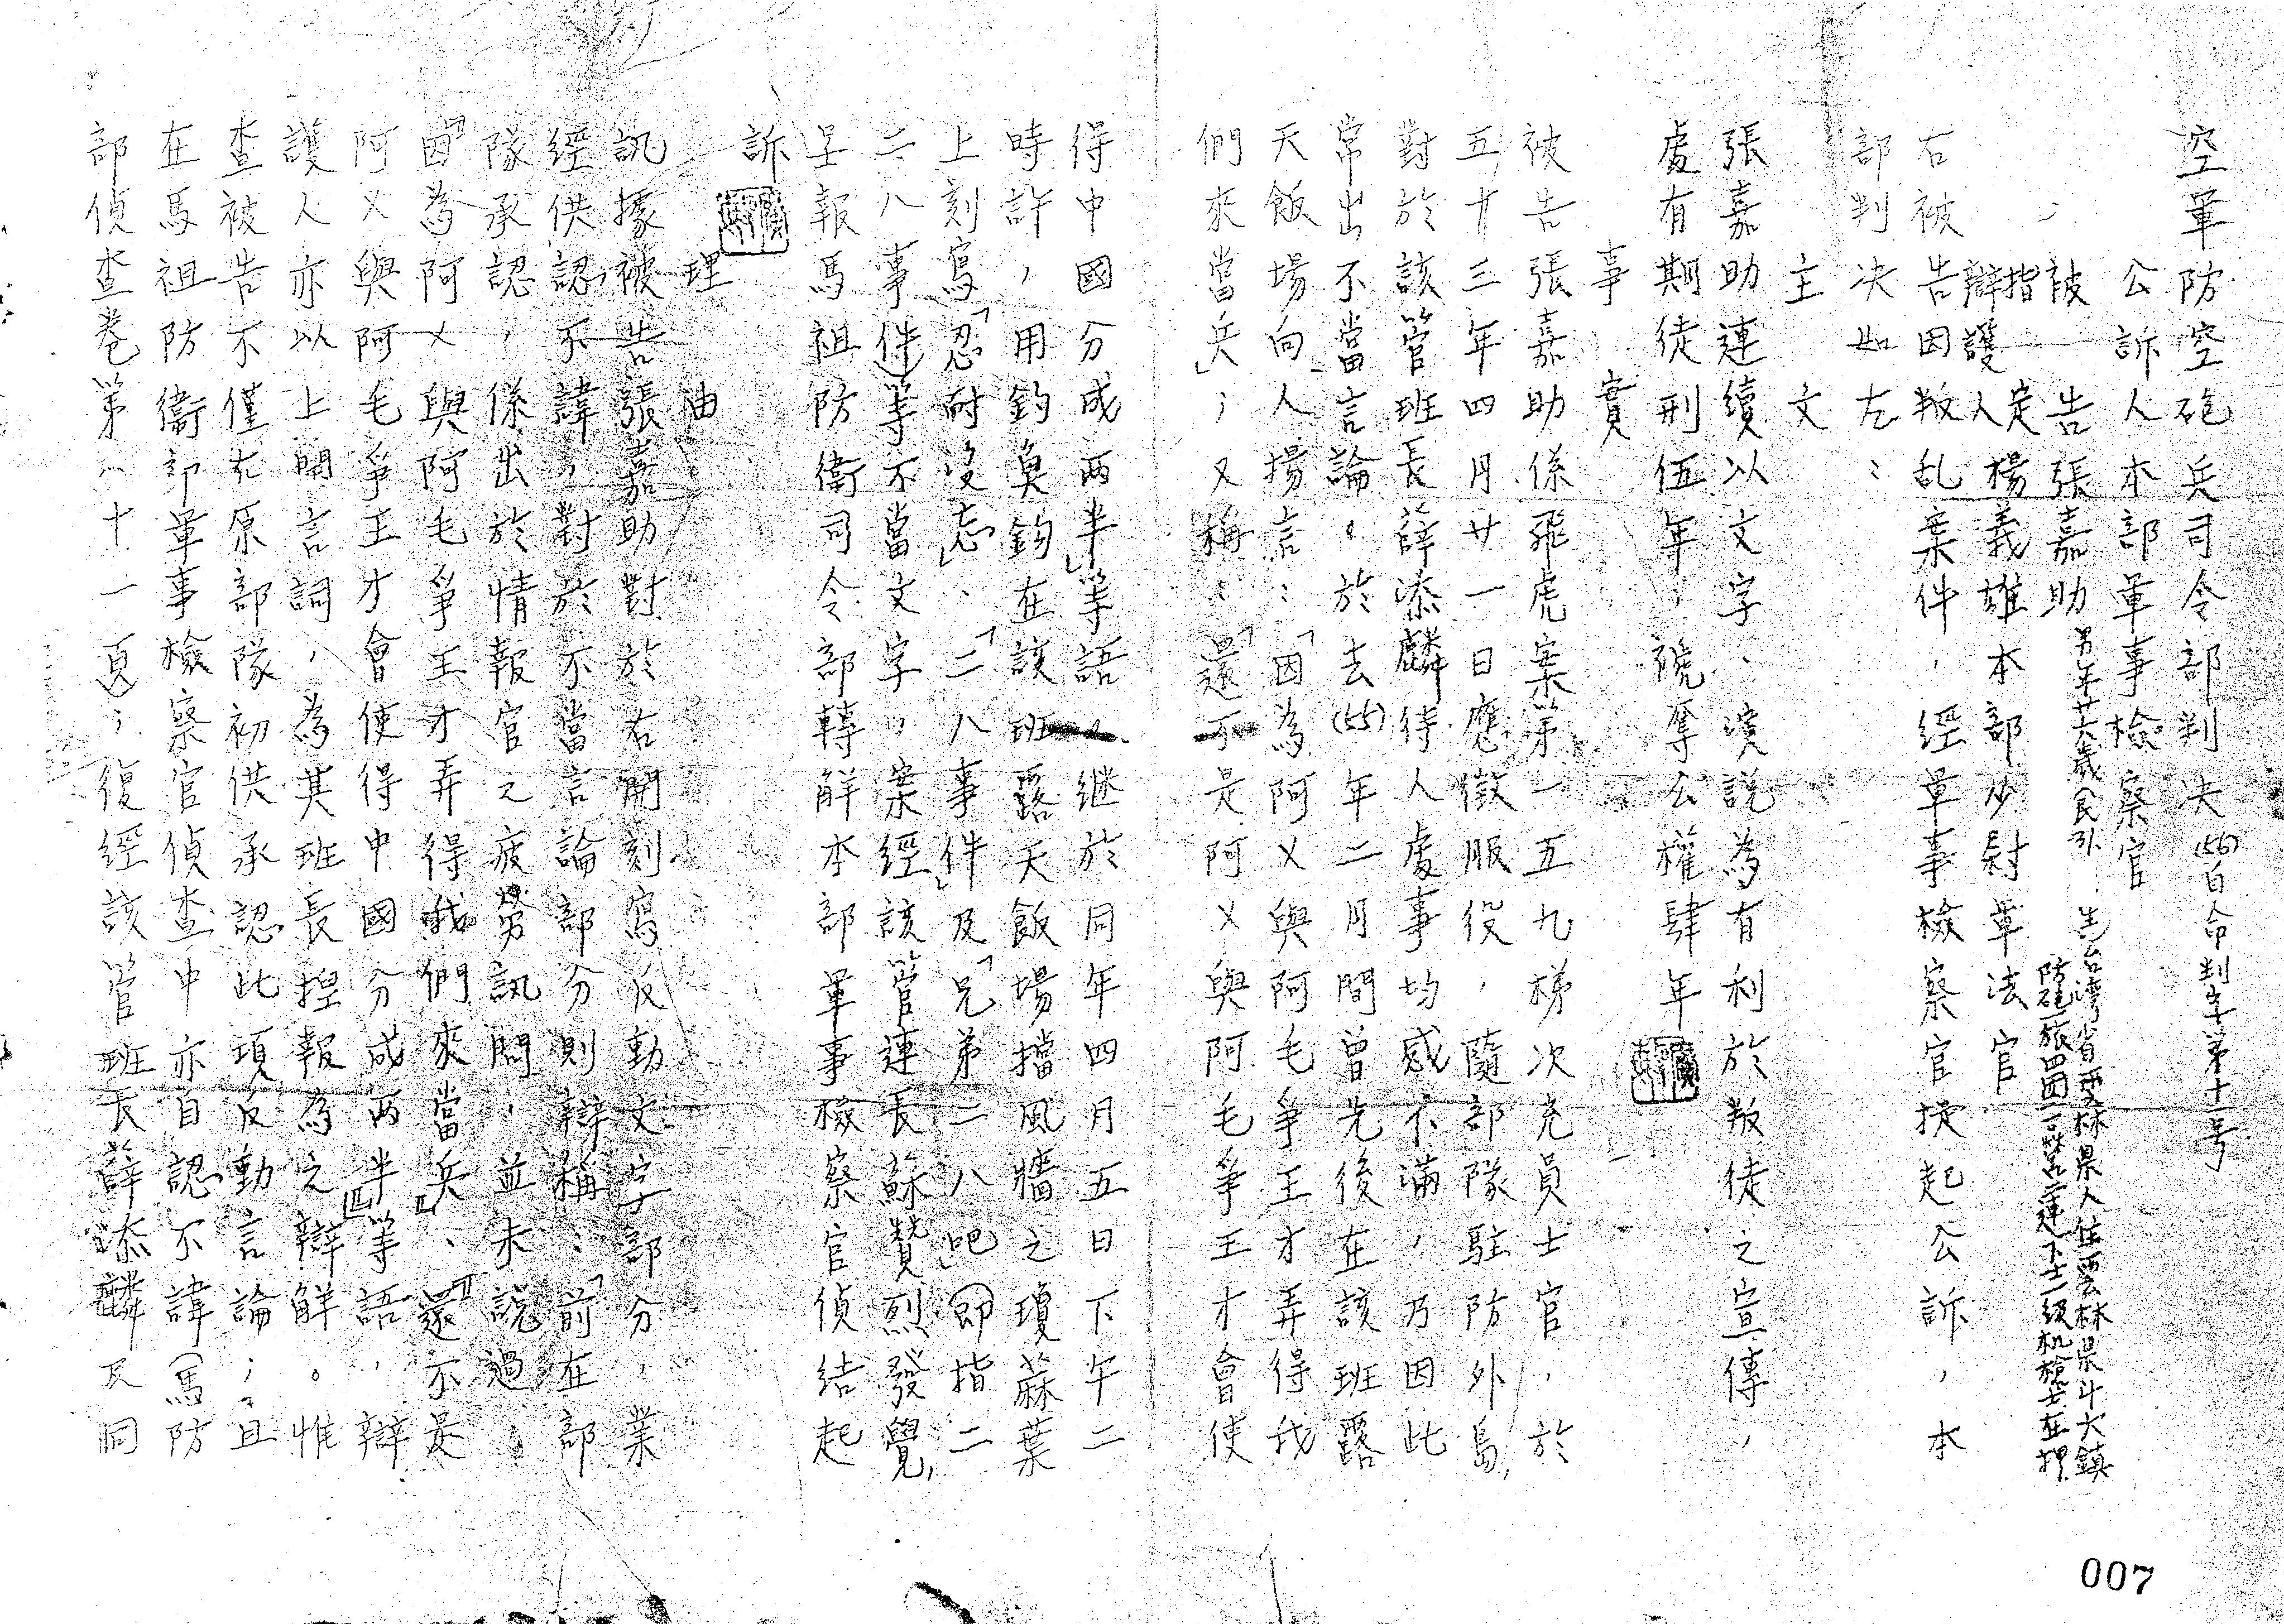 空軍防空砲兵司令部判决(56)自命判字第十一号
公訴人本部軍事檢察官
被告張嘉助 男年廿六歲(民31. 生)台湾省雲林県人住雲林県斗六鎮
防砲一旅四团一营二連下士一级机槍士在押
指定
辯護人楊義雄本部少尉軍法官
右被告因叛乱案件，經軍事檢察官提起公訴，本
部判决如左：
主文
張嘉助連續以文字、演説為有利於叛徒之宣傳，
處有期徒刑伍年，褫奪公權肆年
事實
被告張嘉助係飛虎案第一五九梯次充員士官，於
五十三年四月廿一日應徵服役，隨部隊駐防外島，
對於該管班長薛添麟待人處事均感不滿，乃因此
常出不當言論。於去(55)年二月間曾先後在該班露
天飯場向人揚言：「因為阿ㄨ與阿毛爭王才弄得我
們來當兵」；又稱：「還不是阿ㄨ與阿毛爭王才會使
得中國分成兩半」等語。继於同年四月五日下午二
時許，用釣魚鈎在該班露天飯場擋風牆之瓊蔴葉
上刻寫「忍耐沒忘」、「二八事件」及「兄弟二八吧」(即指二
二八事件)等不當文字，案經該管連長蘇贊烈發覺，
呈報馬祖防衛司令部轉解本部軍事檢察官偵結起
訴
理由
訊據被告張嘉助對於右開刻寫反動文字部分，業
經供認不諱，對於不當言論部分則辯稱：「前在部
隊承認，係出於情報官之疲勞訊問，並未說過：
『因為阿ㄨ與阿毛爭王才弄得我們來當兵』、『還不是
阿ㄨ與阿毛爭王才會使得中國分成兩半』」等語，辯
護人亦以上開言詞，為其班長揑報為之辯解。惟
查被告不僅在原部隊初供承認此項反動言論；且
在馬祖防衛部軍事檢察官偵查中亦自認不諱(馬防
部偵查卷第八十一頁)；復經該管班長薛添麟及同
007